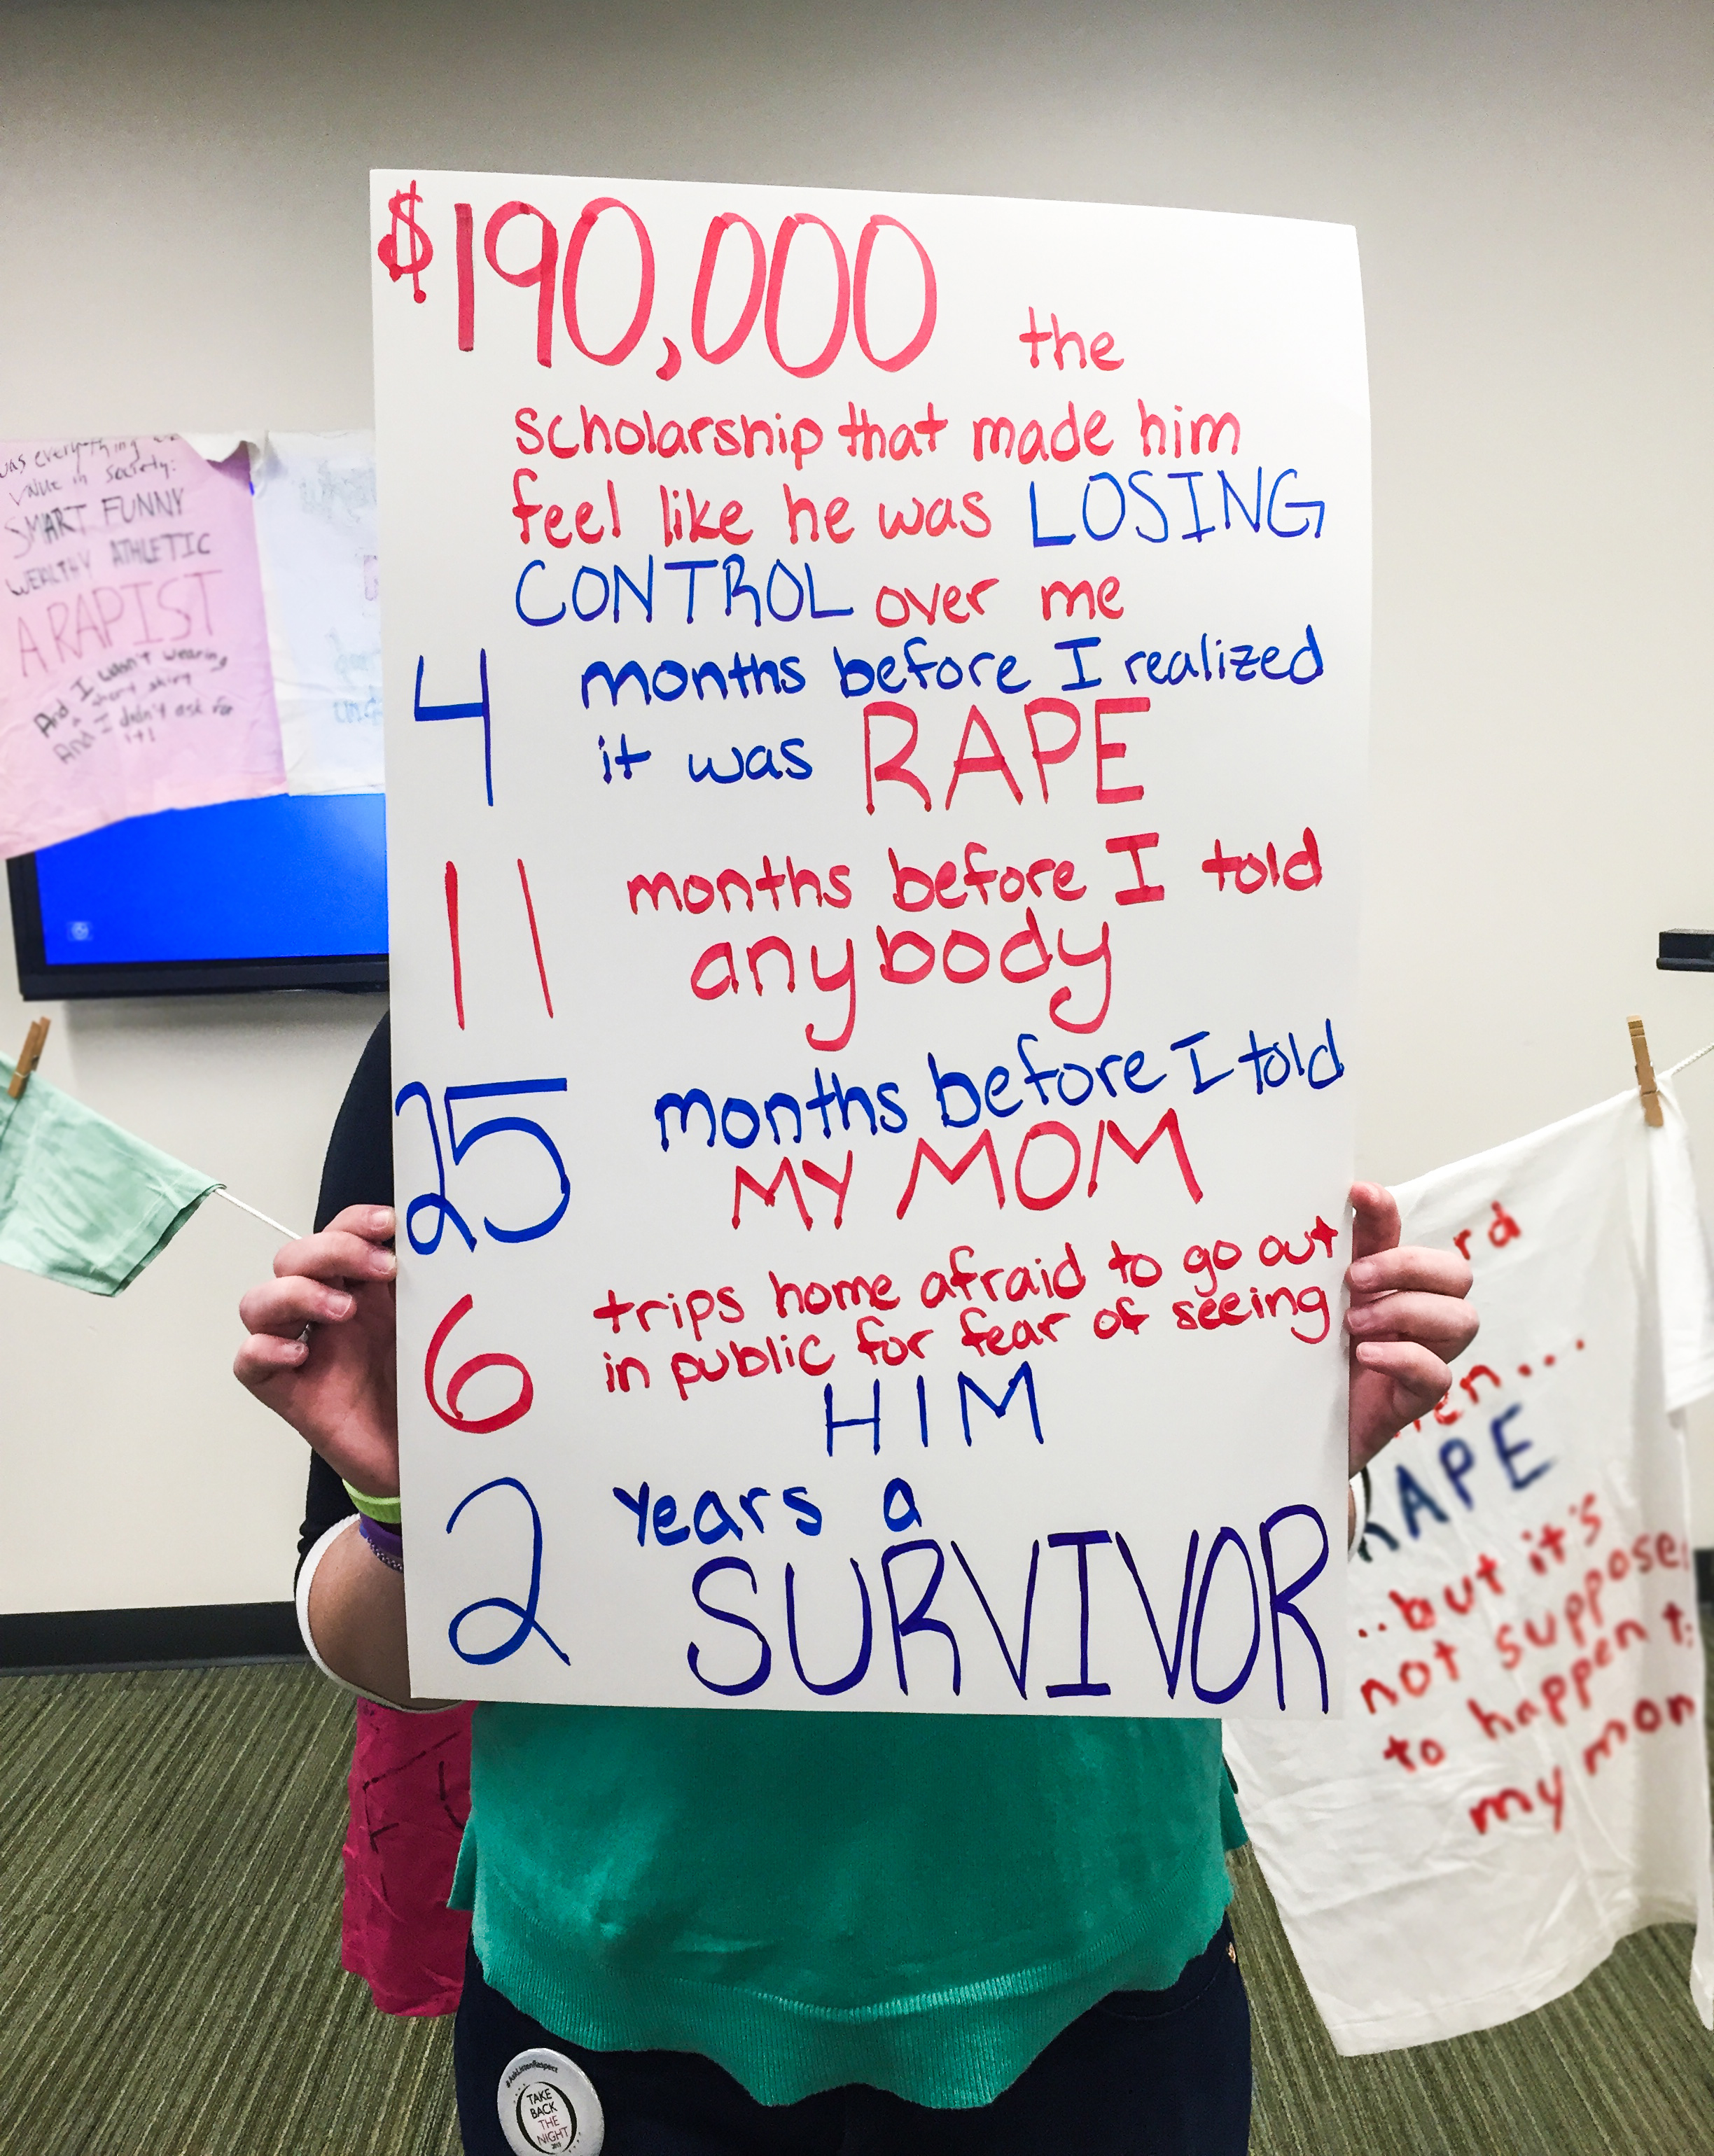 $190,000 the
scholarship that made him
feel like he was LOSING
CONTROL over me
4 months before I realized
it was RAPE
11 months before I told
anybody
25 months before I told
MY MOM
6 trips home afraid to go out
in public for fear of seeing
HIM
2 years a
SURVIVOR
was everything
value in society:
SMART FUNNY
WEALTHY ATHLETIC
A RAPIST
And I wasn't wearing
a short skirt
And I didn't ask for
it!
rd
en...
RAPE
..but it's
not suppose
to happen t
my mon
#AskListenRespect
TAKE
BACK
THE
NIGHT